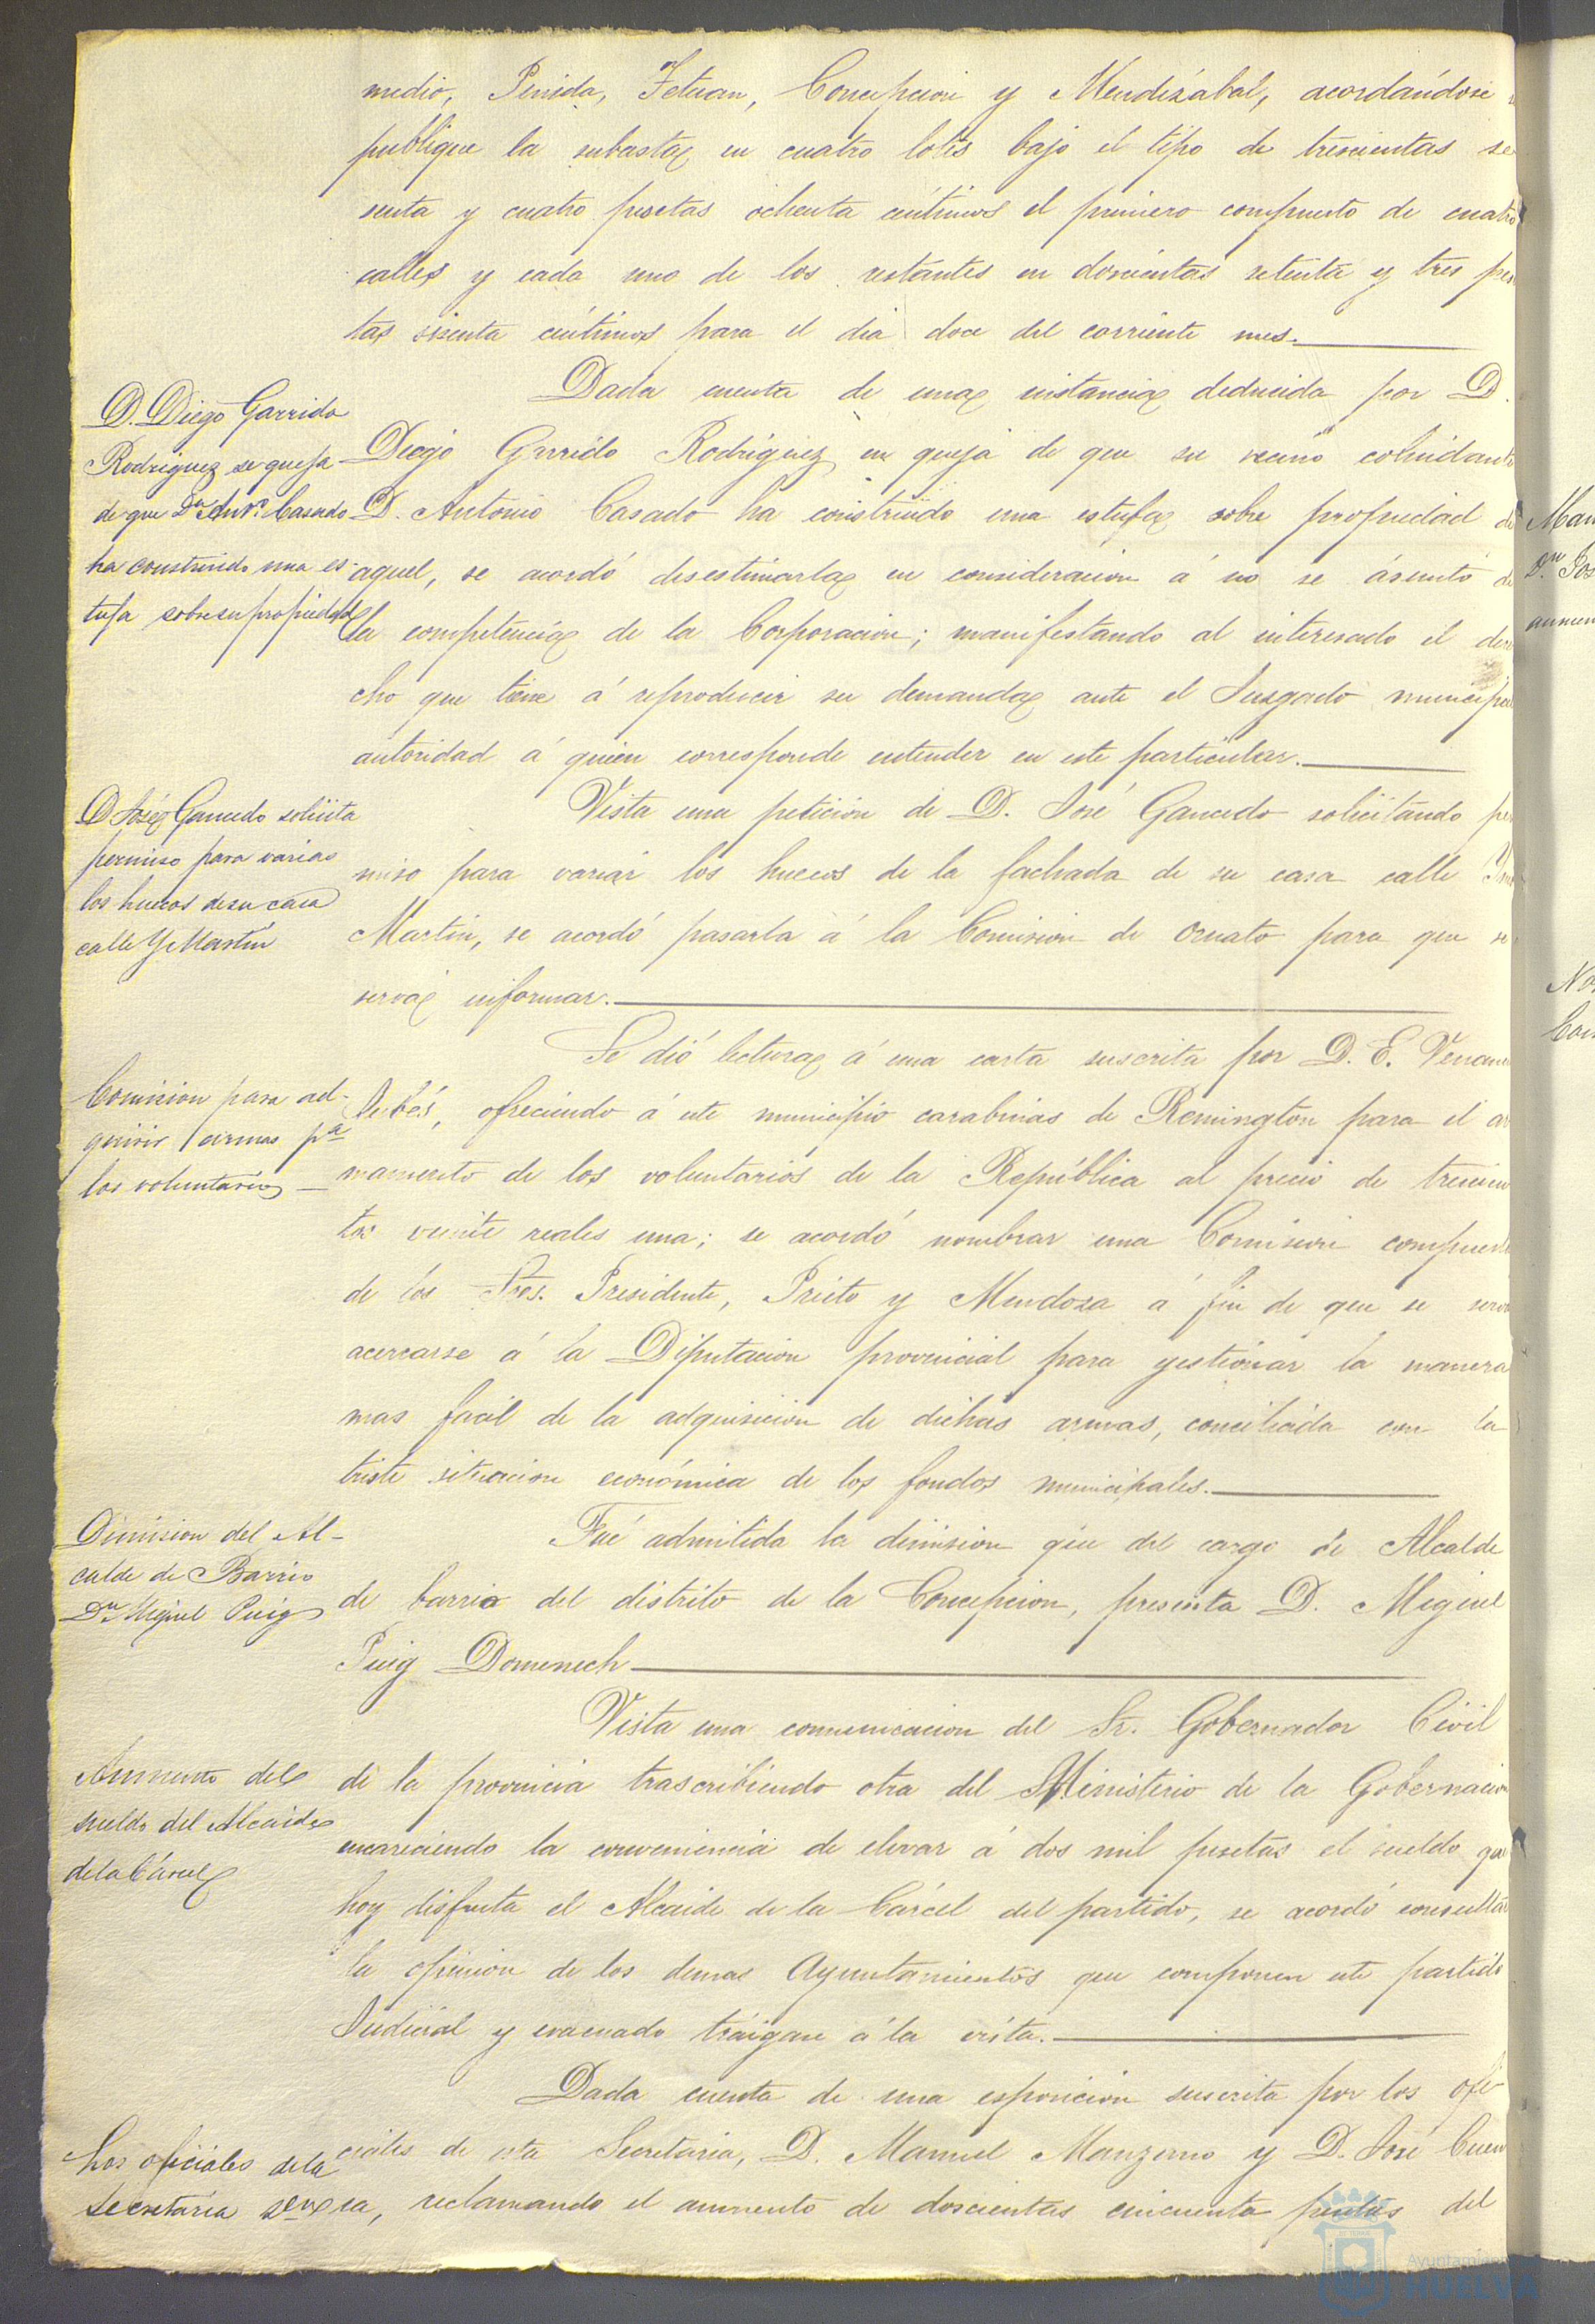 medio, Pinida, Tetuan, Concepcion y Mendizábal, acordándose
publique la subasta en cuatro lotes bajo el tipo de trescientas se
senta y cuatro pesetas ochenta céntimos el primero compuesto de cuatro
calles y cada uno de los restantes en doscientas setenta y tres pese
tas sesenta céntimos para el dia doce del corriente mes.
D. Diego Garrido
Rodriguez se queja
de que Dn. Antº. Casado
ha construido una es-
tufa sobre su propiedad
Dada cuenta de una instancia deducida por D.
Diego Grrrido Rodriguez en queja de que su vecino colindante
D. Antonio Casado ha construido una estufa sobre propiedad de
aquel, se acordó desestimarla en consideracion á no se ásunto de
la competencia de la Corporacion; manifestando al interesado el dere
cho que tiene á reproducir su demanda ante el Juzgado municipal
autoridad á quien corresponde entender en este particular.
D José Gancedo solicita
permiso para variar
los huecos de su casa
calle Y Martin
Vista una peticion de D. José Gancedo solicitando per
miso para variar los huecos de la fachada de su casa calle
Martin, se acordó pasarla á la Comision de Ornato para que se
serva informar.
Comision para ad-
quirir armas pa
los voluntarios
Se dió lectura á una carta suscrita por D. E.
ofreciendo á este municipio carabinas de Remington para el ar
mamento de los voluntarios de la República al precio de trescien
tos veinte reales una; se acordó nombrar una Comision compuesta
de los Sres. Presidente, Prieto y Mendoza á fin de que se serva
acercarse á la Diputacion provincial para gestionar la manera
mas facil de la adquisicion de dichas armas, conciliada con la
triste situacion económica de los fondos municipales.
Dimision del Al-
calde de Barrio
Dn. Miguel Puig
Fué admitida la dimision que del cargo de Alcalde
de barrio del distrito de la Concepcion, presenta D. Miguel
Puig Domenech
Aumento del
sueldo del Alcaide
de la Cárcel
Vista una comunicacion del Sr. Gobernador Civil
de la provincia trascribiendo otra del Ministerio de la Gobernacion
encareciendo la conveniencia de elevar á dos mil pesetas el sueldo que
hoy disfruta el Alcaide de la Cárcel del partido, se acordó consultar
la opinion de los demas Ayuntamientos que componen este partido
Judicial y evacuado tráigase á la vista.
Los oficiales de la
Secretaria
Dada cuenta de una esposicion suscrita por los ofi-
ciales de esta Secretaria, D. Manuel Manzano y D. José Cuen
ca, reclamando el aumento de doscientas cincuenta pesetas del
Ayuntamiento
HUELVA